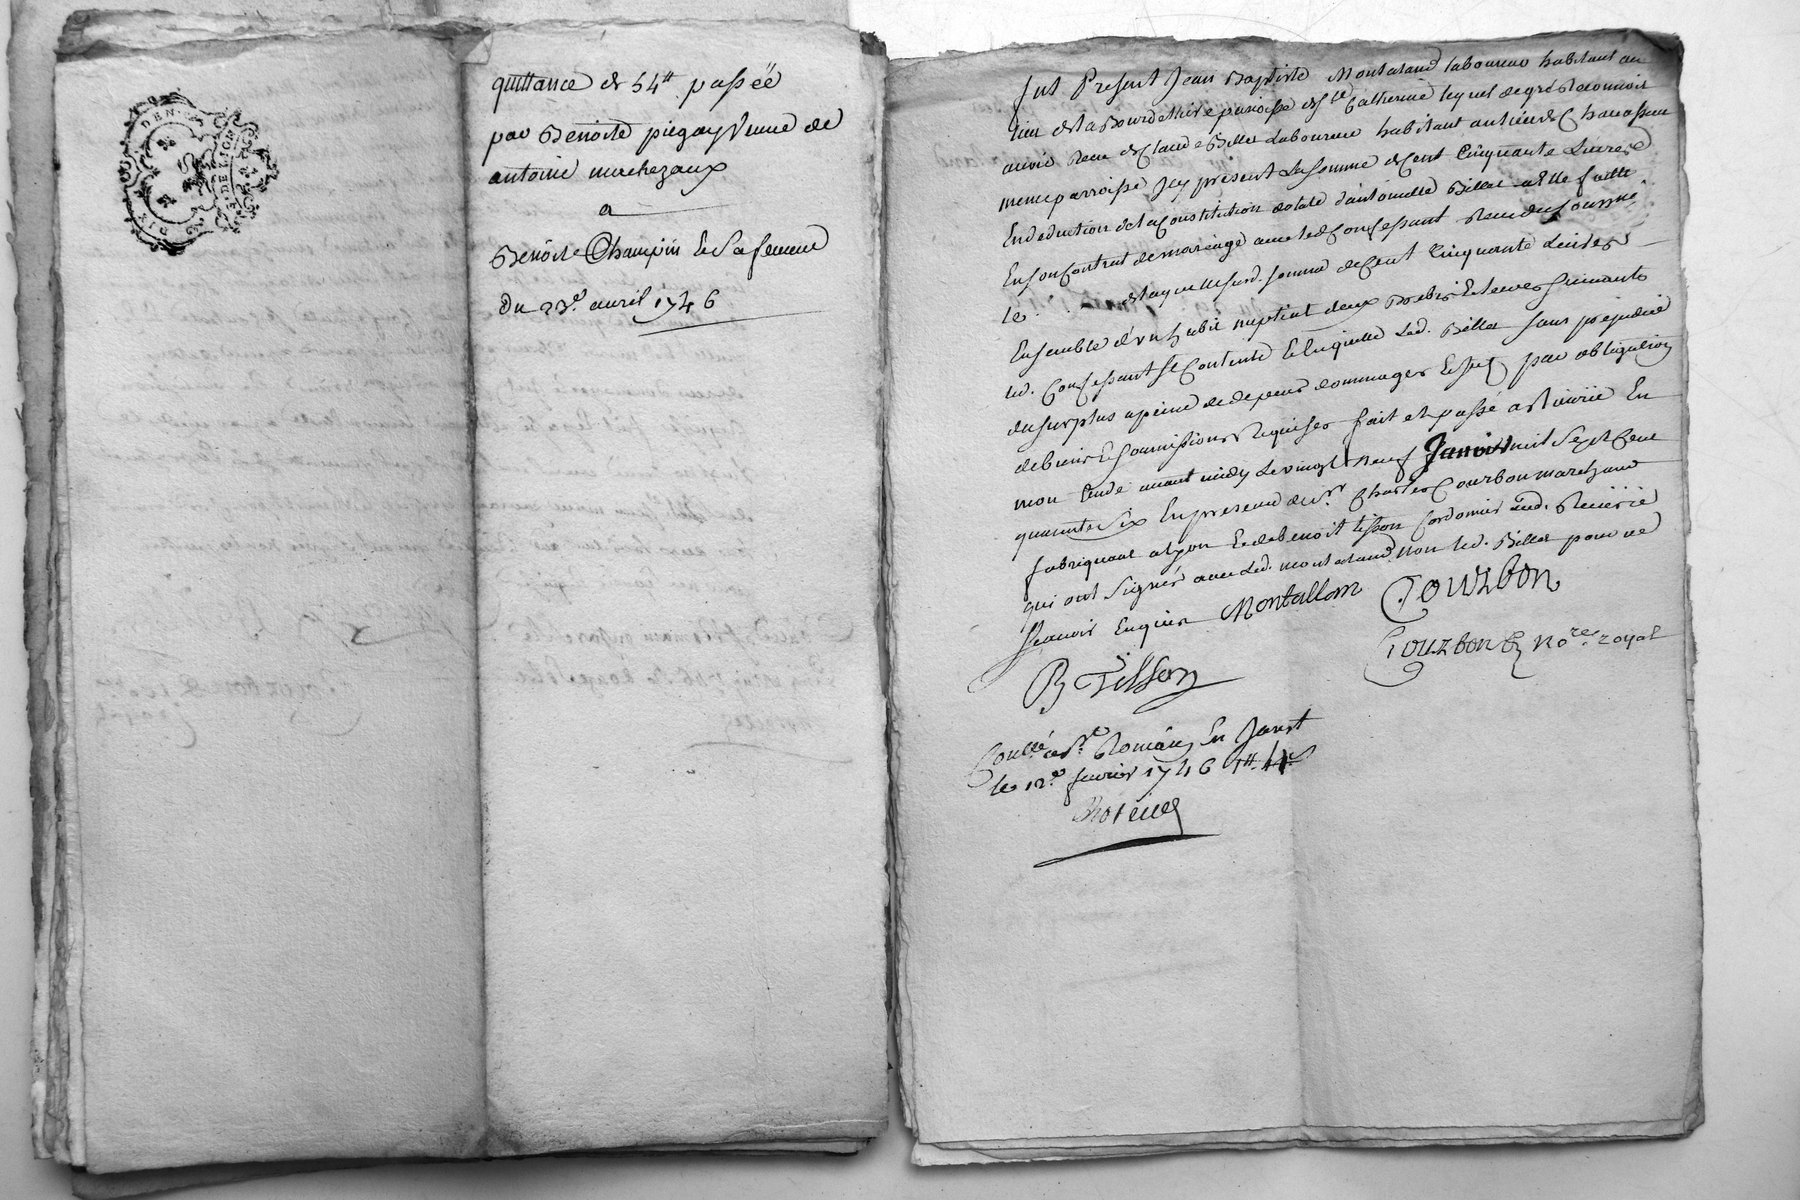 DIX DEN
G. DE LION
quittance de 54tt passée
par Benoite piegay veuve de
antoine murchezaux
a
Benoite Champin et sa femme
Du 23e. avril 1746
fut Present Jean Baptiste Montaland laboureur habitant au
lieu de la Bourdelliere paroisse de Ste Catherine lequel de gré Reconnoit
avoir Receu de Claude Billet Laboureur habitant au lieu de Chavassieu
meme parroisse Icy present La Somme de Cent Cinquante Livres
En deduction de la Constitution dotale d'antoinette Billet a Elle faitte
En son Contrat de mariage avec led Confessant Receu du soussigné
le de laquelle susd. somme de Cent Cinquante Livres
Ensemble d'un habit nuptial deux Brebis Et leurs suivants
led. Confessant se Contente Et en quitte Led. Billet sans prejudice
du surplus a peine de depens dommages par obligation
de biens Et soumissions Requises fait et passé a Riverie En
mon Etude avant midy Le vingt neuf Janvier mil Sept Cent
quarante Six En presence de Sr Charles Courbon marchand
fabriquant a Lyon Et de benoit tisson Cordonnier aud. Riverie
qui ont signés avec Led. montaland non led. Billet pour ne
sçavoir Enquis Montallan Courbon
B Tisson Courbon No.re royal
Conllé a St. Romain En Jarest
le 12e. fevrier 1746